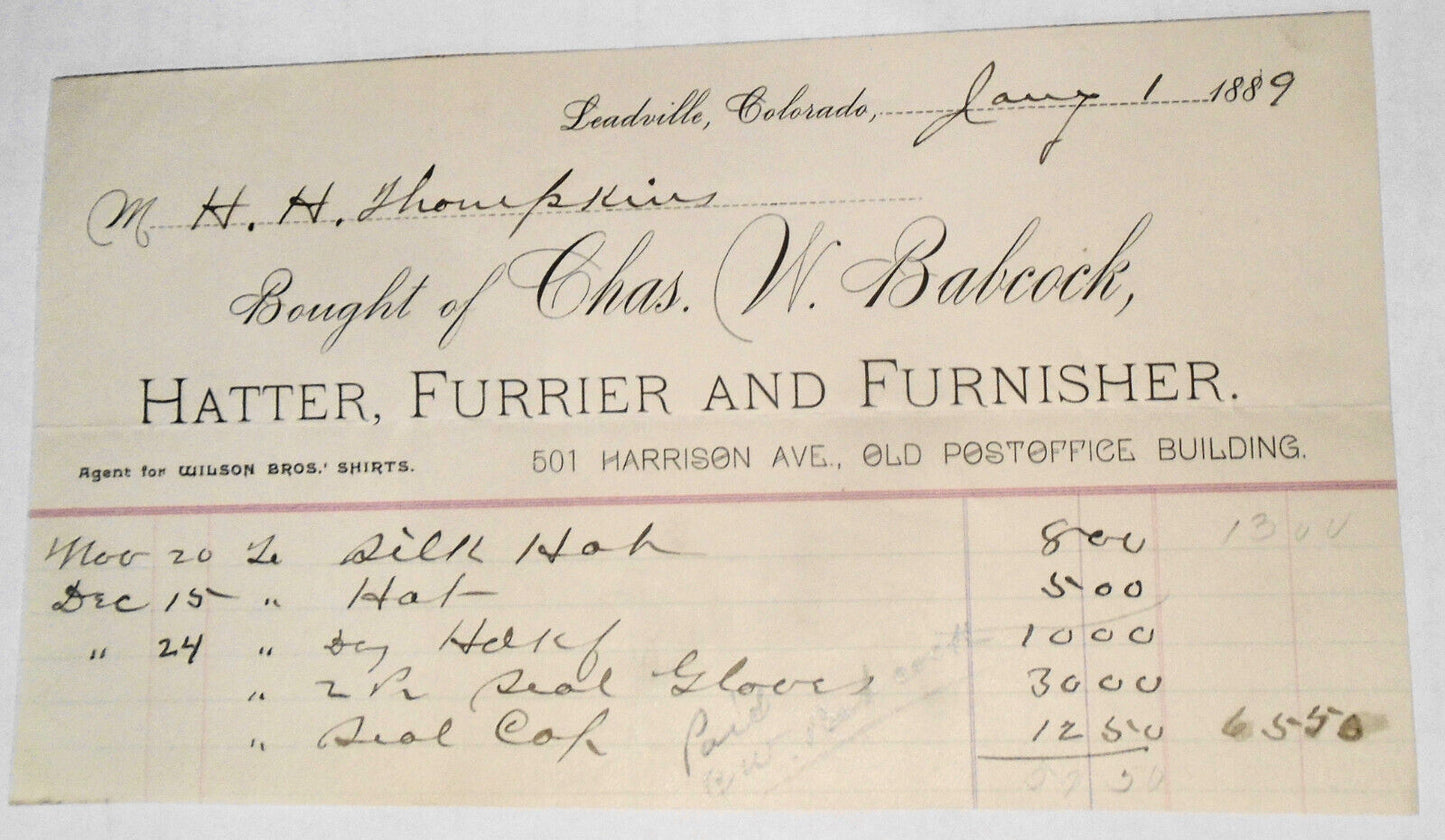 Leadville, Colorado, Jany 1 1889
M H. H. Thompkins
Bought of Chas. W. Babcock,
HATTER, FURRIER AND FURNISHER.
Agent for WILSON BROS.' SHIRTS. 501 HARRISON AVE., OLD POSTOFFICE BUILDING.
Nov 20 To Silk Hat 800 1300
Dec 15 " Hat 500
" 24 " Doz Hdkf 1000
" 2 Pr Seal Gloves 3000
" Seal Cap 1250 6550
Paid
C W Babcock